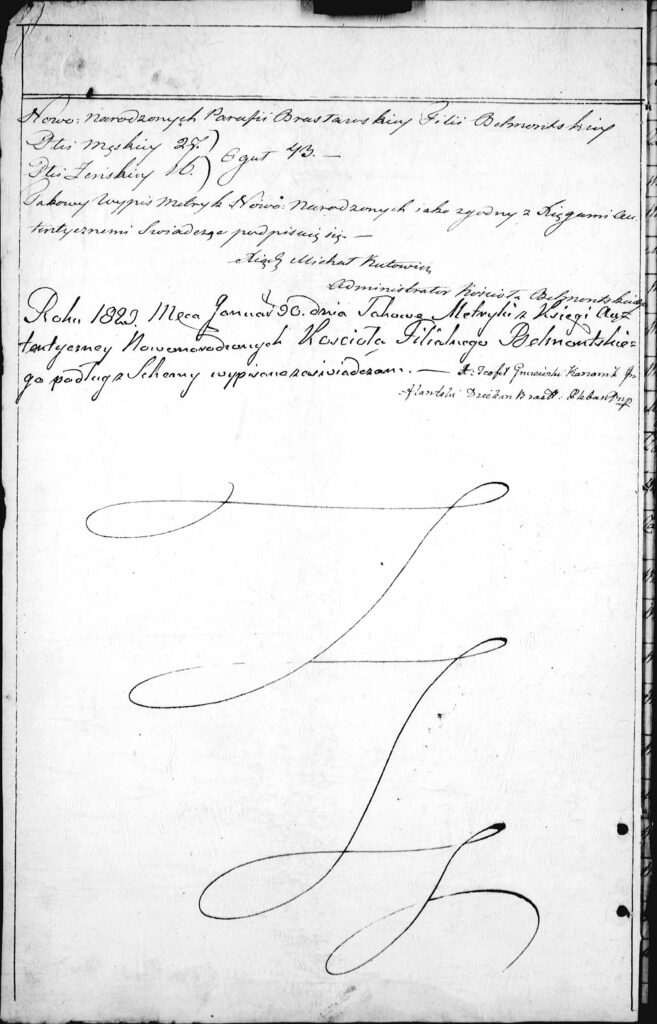 Nowo: narodzonych Parafii Brasławskiey Filii Belmontskiey
Płci Męskiey 27.
Płci Żeńskiey 16. Oguł 43. —
Takowy Wypis Metryk Nowo: narodzonych iako zgodny z Księgami au
tentycznemi Świadcząc podpisuię się. —
Xiądz Michał Kutowicz
Administrator Kościoła Belmontskiego
Roku 182 Mca Januar 30. dnia Takowe Metryki z Księgi Auz
tentyczney Nowonarodzonych Kościoła Filialnego Belmontskie-
go podług z Schemy wypisane zaświadczam. — X. Teofil Kanonik
Dziekan Brasł. Pleban